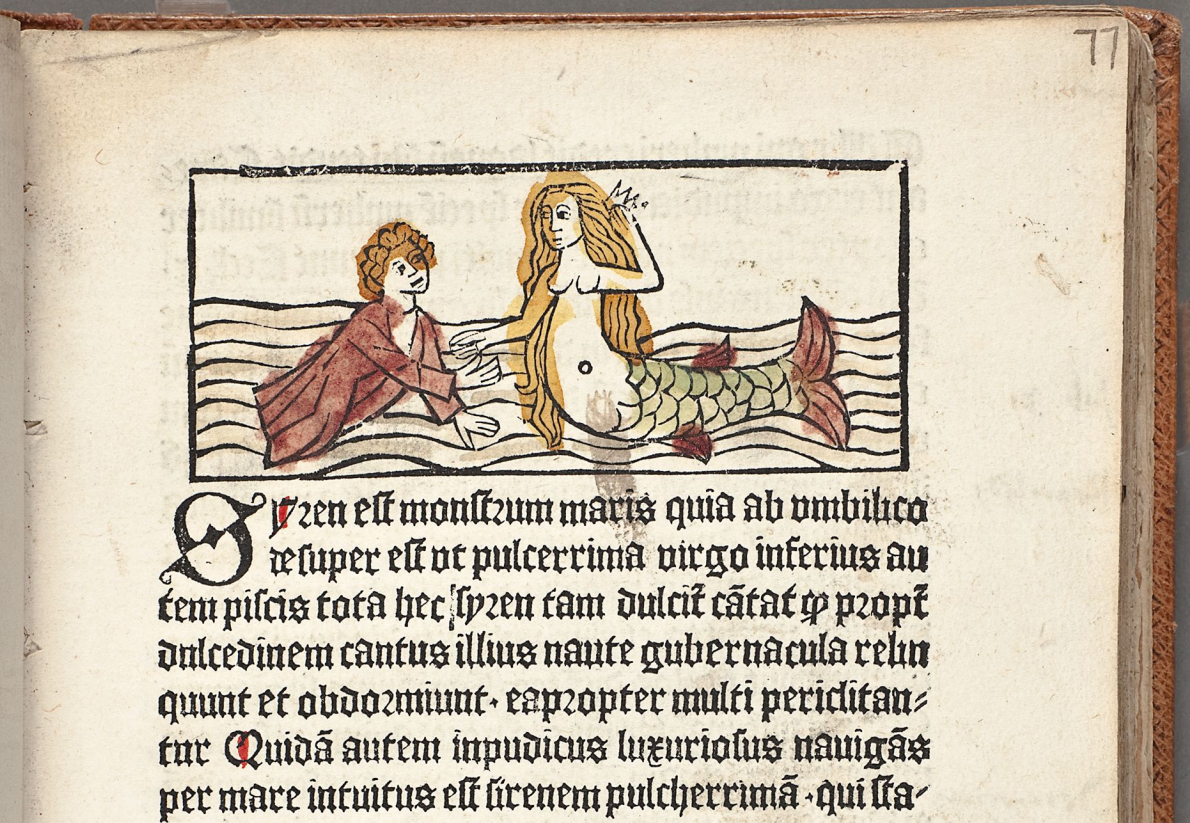 77
Syren est monstrum maris quia ab vmbilico
desuper est vt pulcerrima virgo inferius au
tem piscis tota hec syren tam dulcit̄ cātat ꝙ propt̄
dulcedinem cantus illius naute gubernacula relin
quunt et obdormiunt· eapropter multi periclitan⸗
tur Quidā autem inpudicus luxuriosus nauigās
per mare intuitus est sirenem pulcherrimā ·qui sta⸗